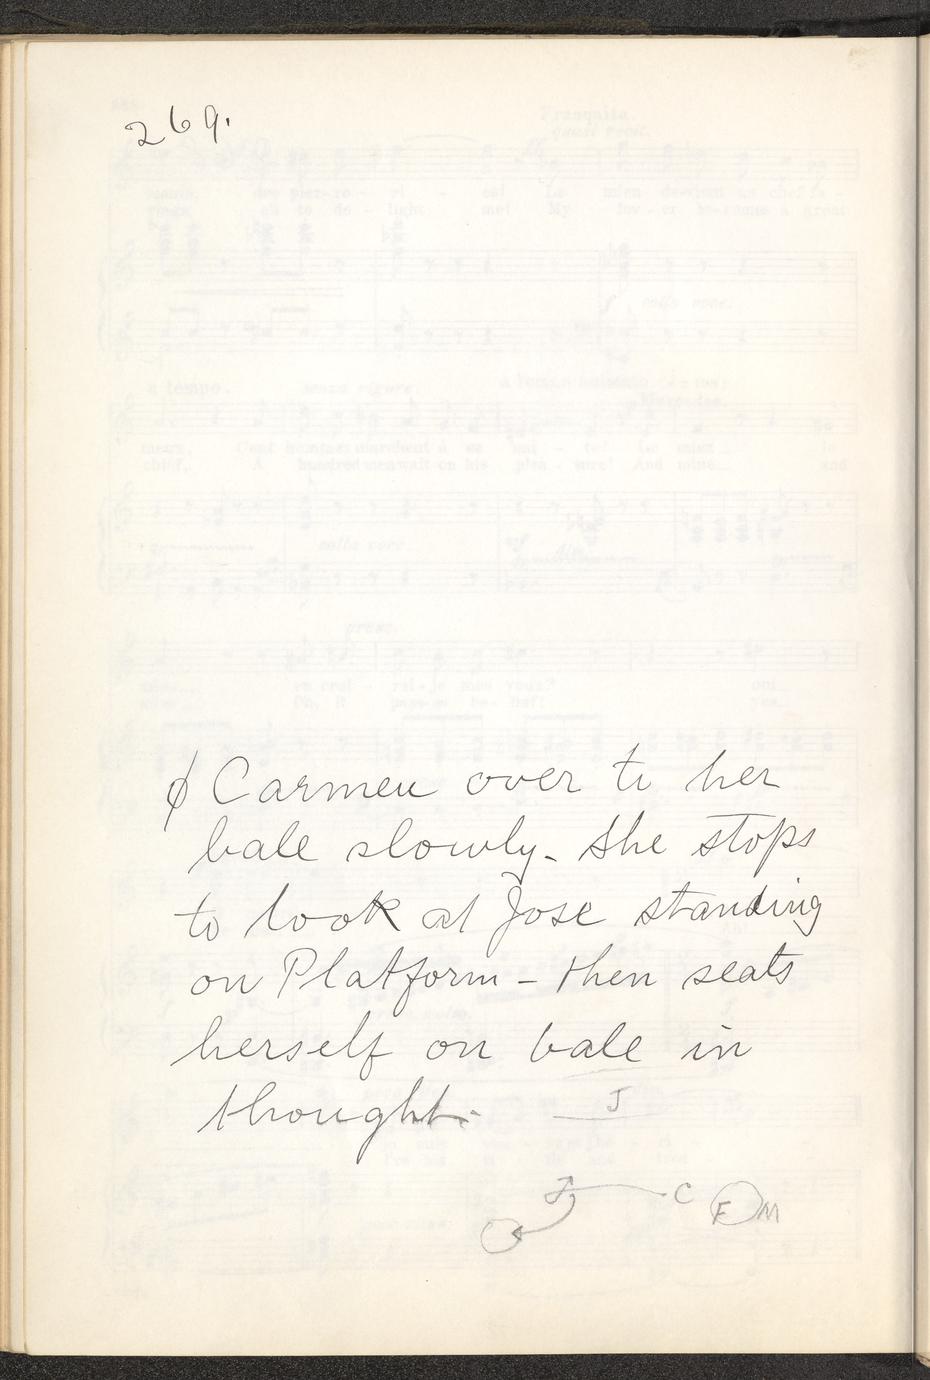 269.
ϕ Carmen over to her
bale slowly. She stops
to look at Jose standing
on Platform – then seats
herself on bale in
thought.
J
C F M